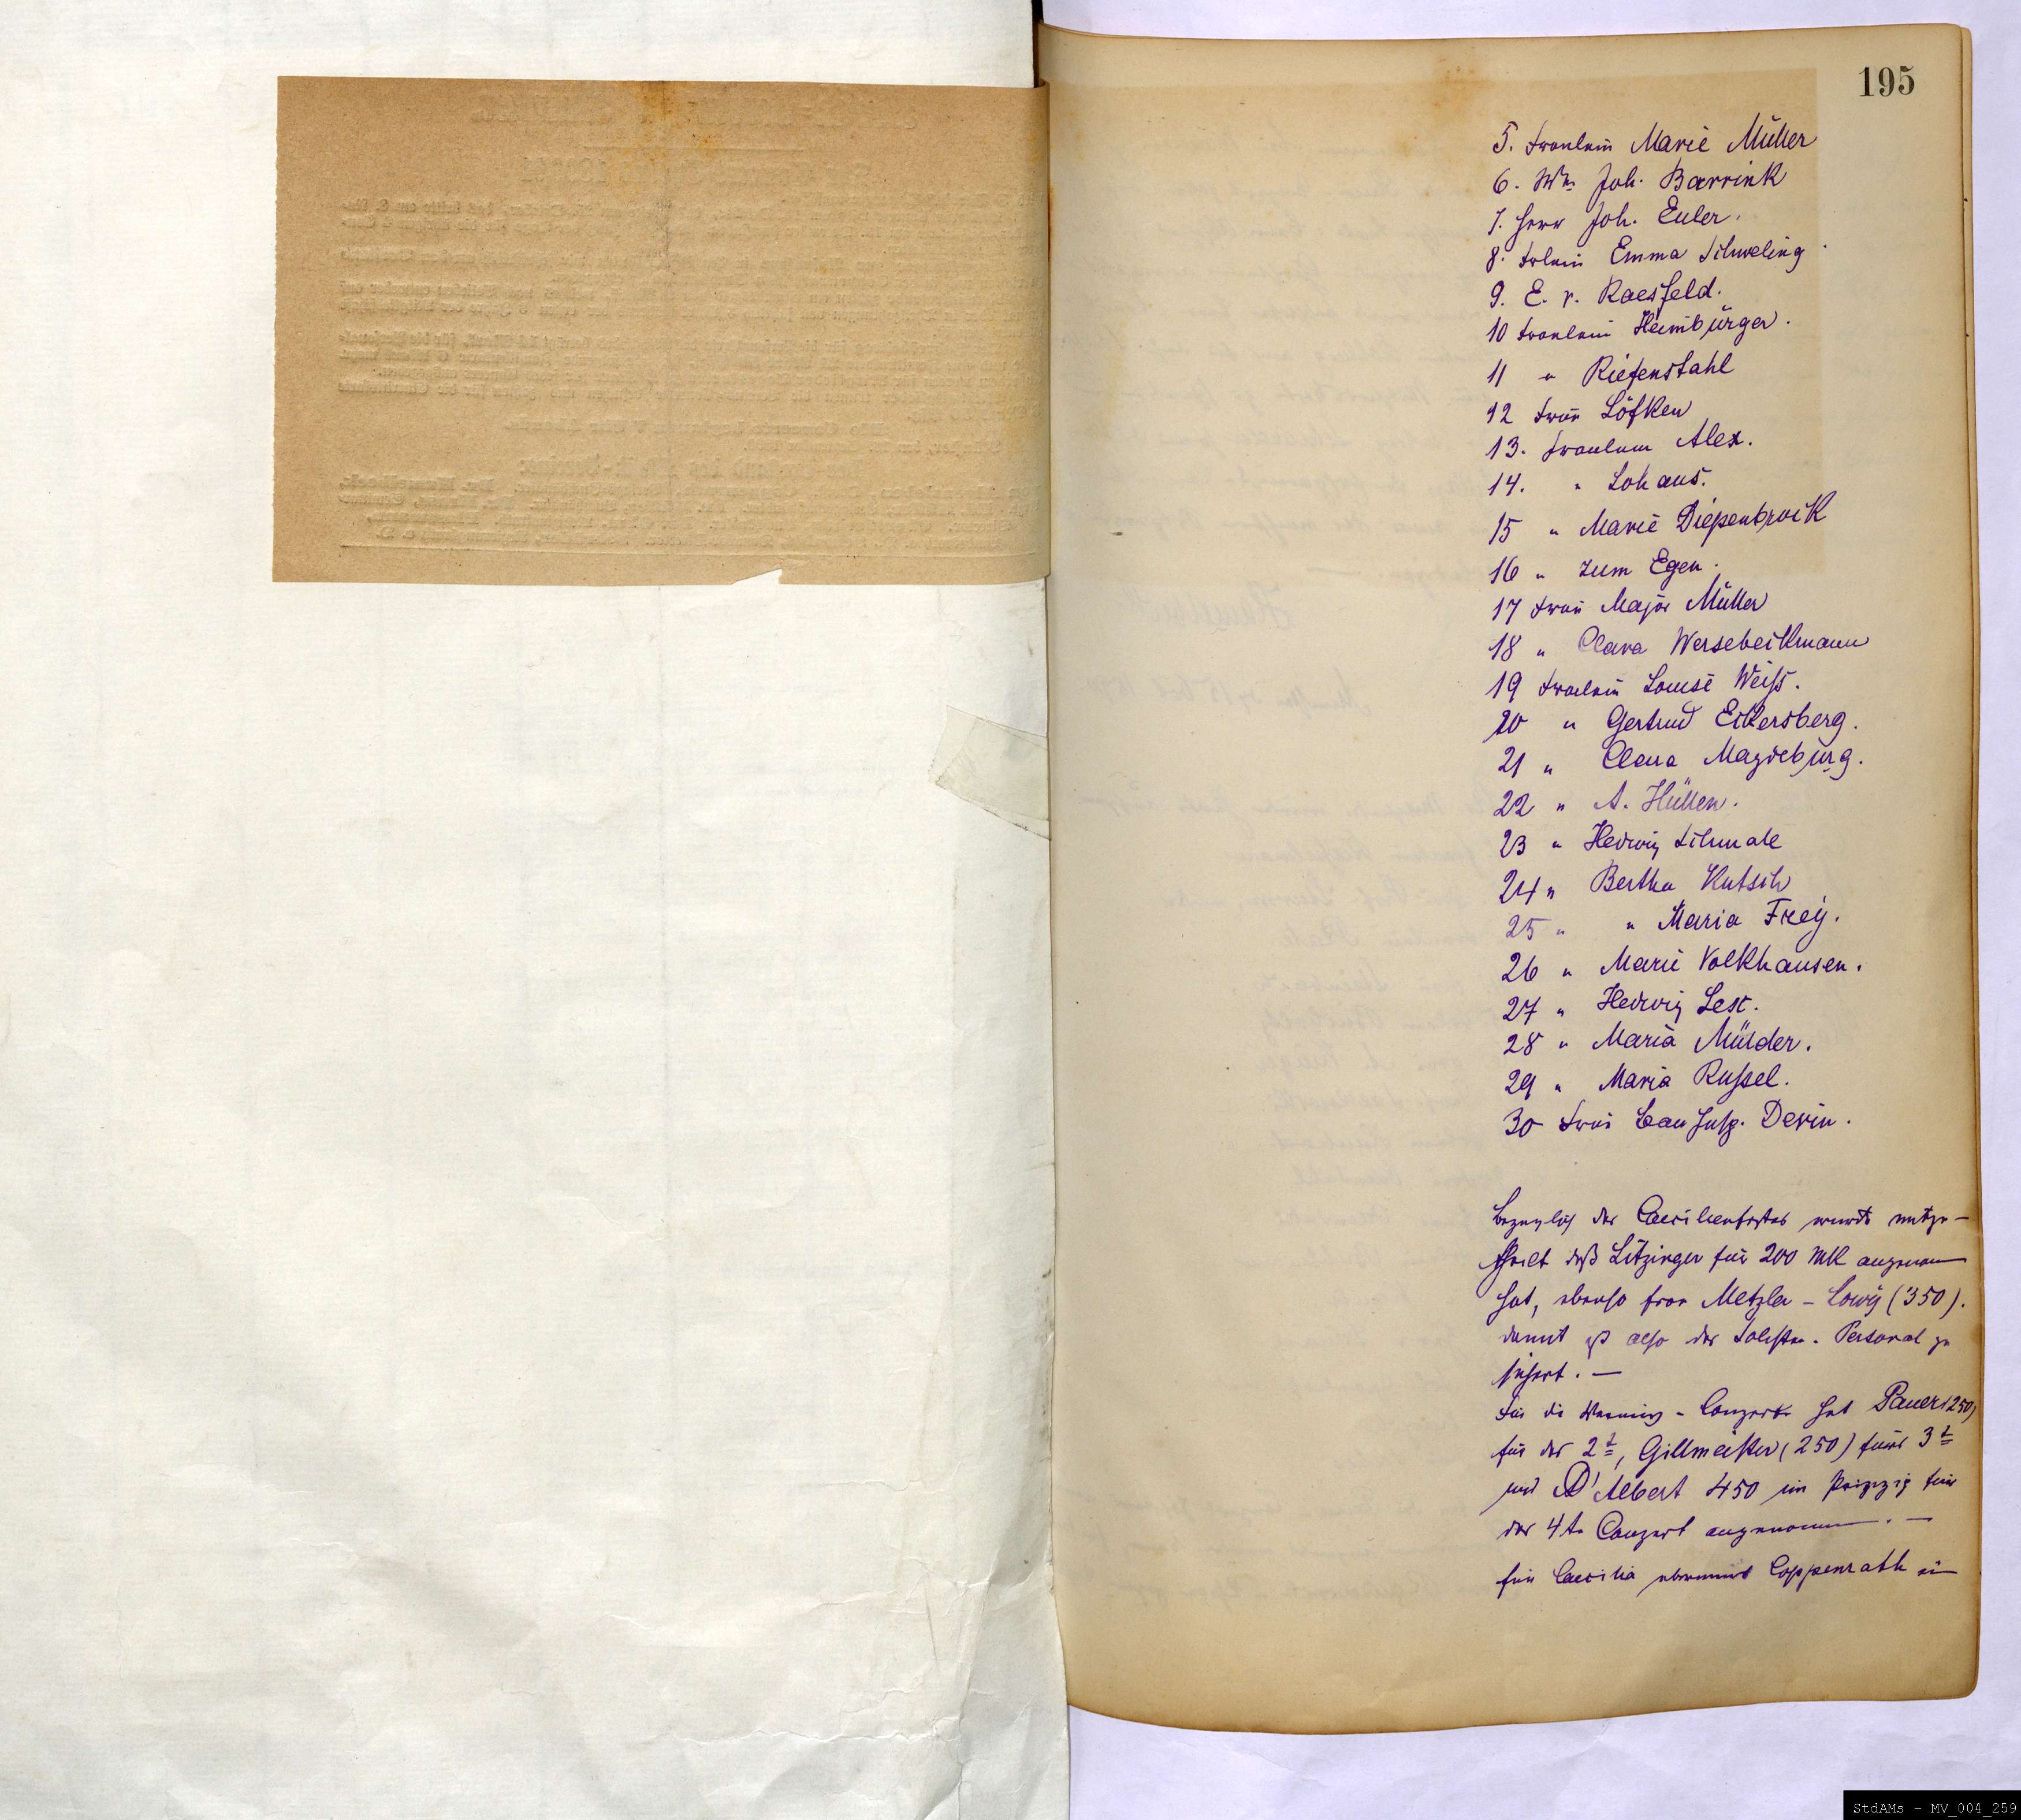 195
5. Fraulein Marie Müller
6. Joh. Barrink
7. Herr Joh. Euler.
8. Frlein Emma Schmeling
9. E. v. Raesfeld.
10 Fraulein Heimbürger.
11 " Riefenstahl
12 Frau Löfken
13. Fraulein Alex.
14. " Lohaus.
15 " Marie Diepenbrock
16 " zum Egen.
17 Frau Major Müller
18 " Clara Wersebeckmann
19 Fraulein Louise Weiß.
20 " Gertrud Eckersberg.
21 " Clara Magdeburg.
22 " A. Hüllen.
23 " Hedwig Schmale
24 " Bertha Kutsch
25 " " Maria Frey.
26 " Marie Volkhausen.
27 " Hedwig Lex.
28 " Maria Mülder.
29 " Maria Russel.
30 Frau Bau Insp. Devin.
Bezuglich des Caecilienfestes wurde mitge-
theilt daß Litzinger für 200 Mk angenom̅
hat, ebenso Frau Metzler - Lowy (350).
damit ist also das Solisten. Personal ge
sichert. —
Für die Vereins - Conzerte hat Pauer (250)
für das 2t, Gillmeister (250) fürs 3t
und D'Albert 450 im für
das 4te Conzert angenom̅. —
für Caecilia Coppenrath
StdAMs - MV_004_259